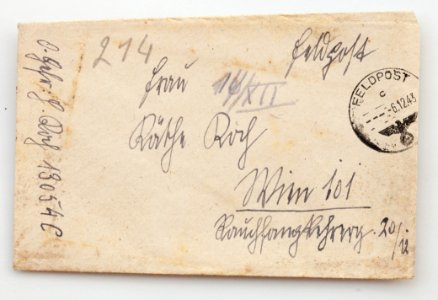 214
Feldpost
Frau
14/XII
Käthe Koch
Wien 101
Rauchfangkehrerg. 20/12
FELDPOST
c
-6.12.43
O. Gefr. 13054 C